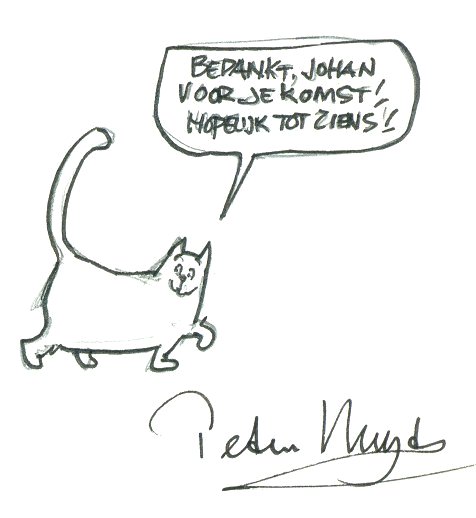 BEDANKT, JOHAN
VOOR JE KOMST!
HOPELIJK TOT ZIENS!!
Peter